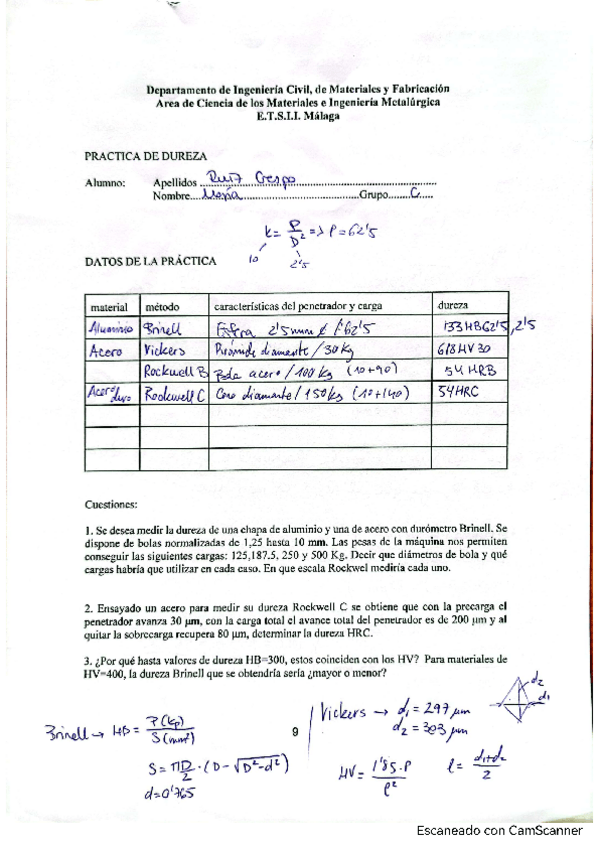 Departamento de Ingeniería Civil, de Materiales y Fabricación
Area de Ciencia de los Materiales e Ingeniería Metalúrgica
E.T.S.I.I. Málaga
PRACTICA DE DUREZA
Alumno: Apellidos Ruiz Crespo
Nombre María Grupo C
k = P / D² => P = 62'5
10 2'5
DATOS DE LA PRÁCTICA
material método características del penetrador y carga dureza
Aluminio Brinell Esfera 2'5mm / 62'5 133HB62'5,2'5
Acero Vickers Pirámide diamante / 30 kg 618HV30
Rockwell B Bola acero / 100 kg (10+90) 54 HRB
Acero duro Rockwell C Cono diamante / 150 kg (10+140) 54HRC
Cuestiones:
1. Se desea medir la dureza de una chapa de aluminio y una de acero con durómetro Brinell. Se
dispone de bolas normalizadas de 1,25 hasta 10 mm. Las pesas de la máquina nos permiten
conseguir las siguientes cargas: 125,187.5, 250 y 500 Kg. Decir que diámetros de bola y qué
cargas habría que utilizar en cada caso. En que escala Rockwel mediría cada uno.
2. Ensayado un acero para medir su dureza Rockwell C se obtiene que con la precarga el
penetrador avanza 30 µm, con la carga total el avance total del penetrador es de 200 µm y al
quitar la sobrecarga recupera 80 µm, determinar la dureza HRC.
3. ¿Por qué hasta valores de dureza HB=300, estos coinciden con los HV? Para materiales de
HV=400, la dureza Brinell que se obtendría sería ¿mayor o menor?
Brinell → HB = P(kp) / S(mm²)
S = πD/2 · (D - √D²-d²)
d = 0'765
9
Vickers → d₁ = 297 µm
d₂ = 303 µm
d₂
d₁
HV = 1'85·P / l²
l = d₁+d₂ / 2
Escaneado con CamScanner